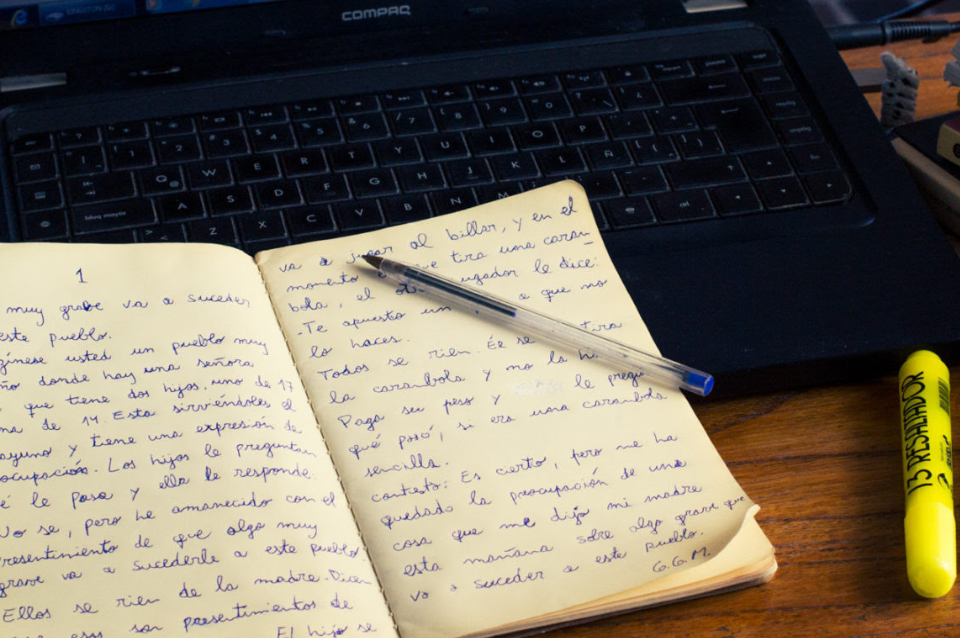 COMPAQ
1
muy grave va a suceder
este pueblo.
gínese usted un pueblo muy
ño donde hay una señora
que tiene dos hijos, uno de 17
na de 14. Esta sirviéndoles el
ayuno y tiene una expresión de
ocupación. Los hijos le preguntan
é le pasa y ella le responde:
No se, pero he amanecido con el
resentimiento de que algo muy
grave va a sucederle a este pueblo.
Ellos se rien de la madre. Dicen
son presentimientos de
El hijo se
va a jugar al billar, y en el
momento e tira una caram-
bola, el ot ugador le dice:
-Te apuesto un a que no
lo haces.
Todos se rien. Él se tira
la carambola y no la hi
Paga su peso y le pregu
qué pasó, si era una carambola
sencilla.
contesto: Es cierto, pero me ha
quedado la preocupación de una
cosa que me dijo mi madre
esta mañana sobre algo grave que
va a suceder a este pueblo.
G.G.M.
13 RESALTADOR